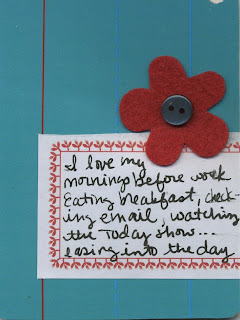 I love my
mornings before work
Eating breakfast, check-
ing email, watching
the Today show...
easing into the day